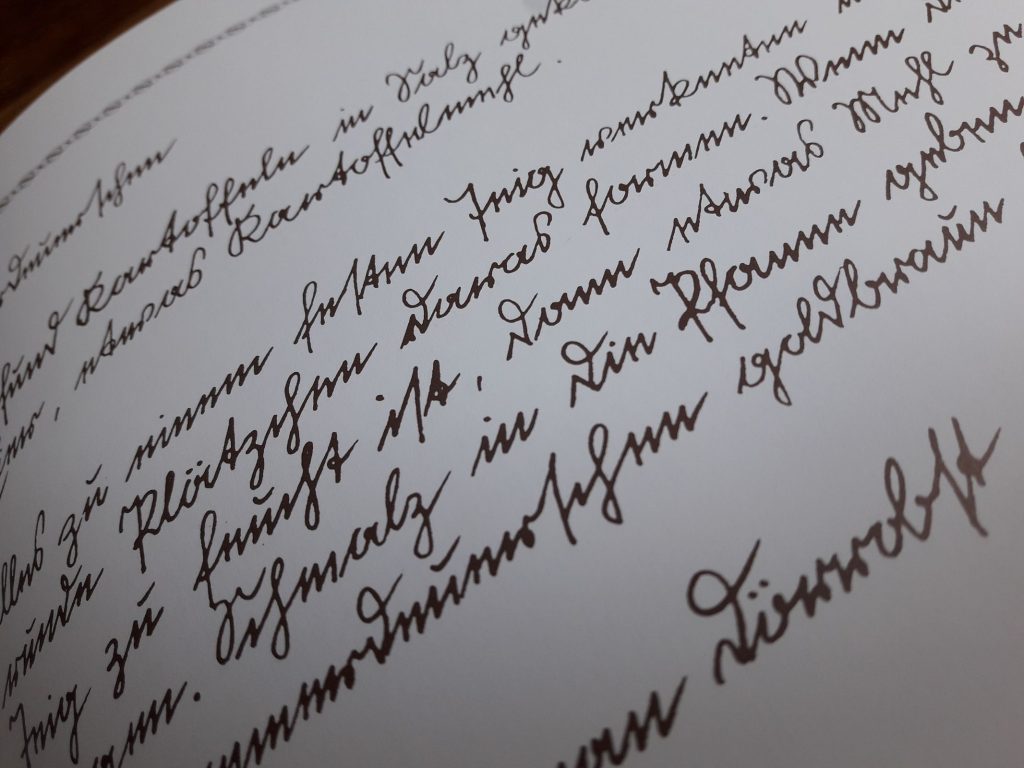 Kartoffeln in Salz
, etwas Kartoffelmehl .
alles zu einem festen Teig verkneten
runde Plätzchen daraus formen. Wenn
Teig zu feucht ist, dann etwas Mehl zu
Schmalz in die Pfanne geben
goldbraun
Dörrobst